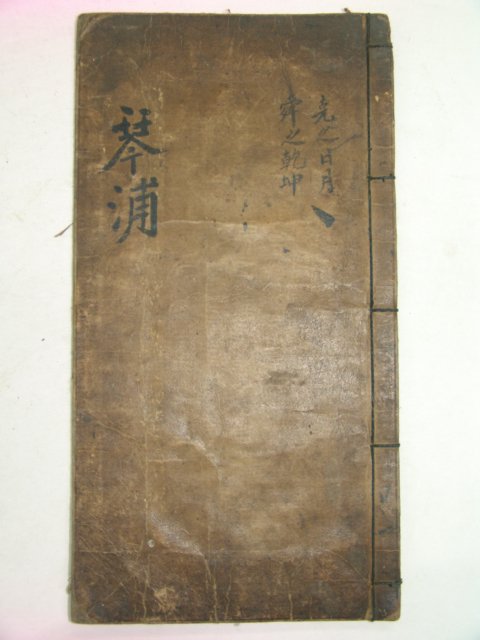 堯之日月
舜之乾坤
琴浦